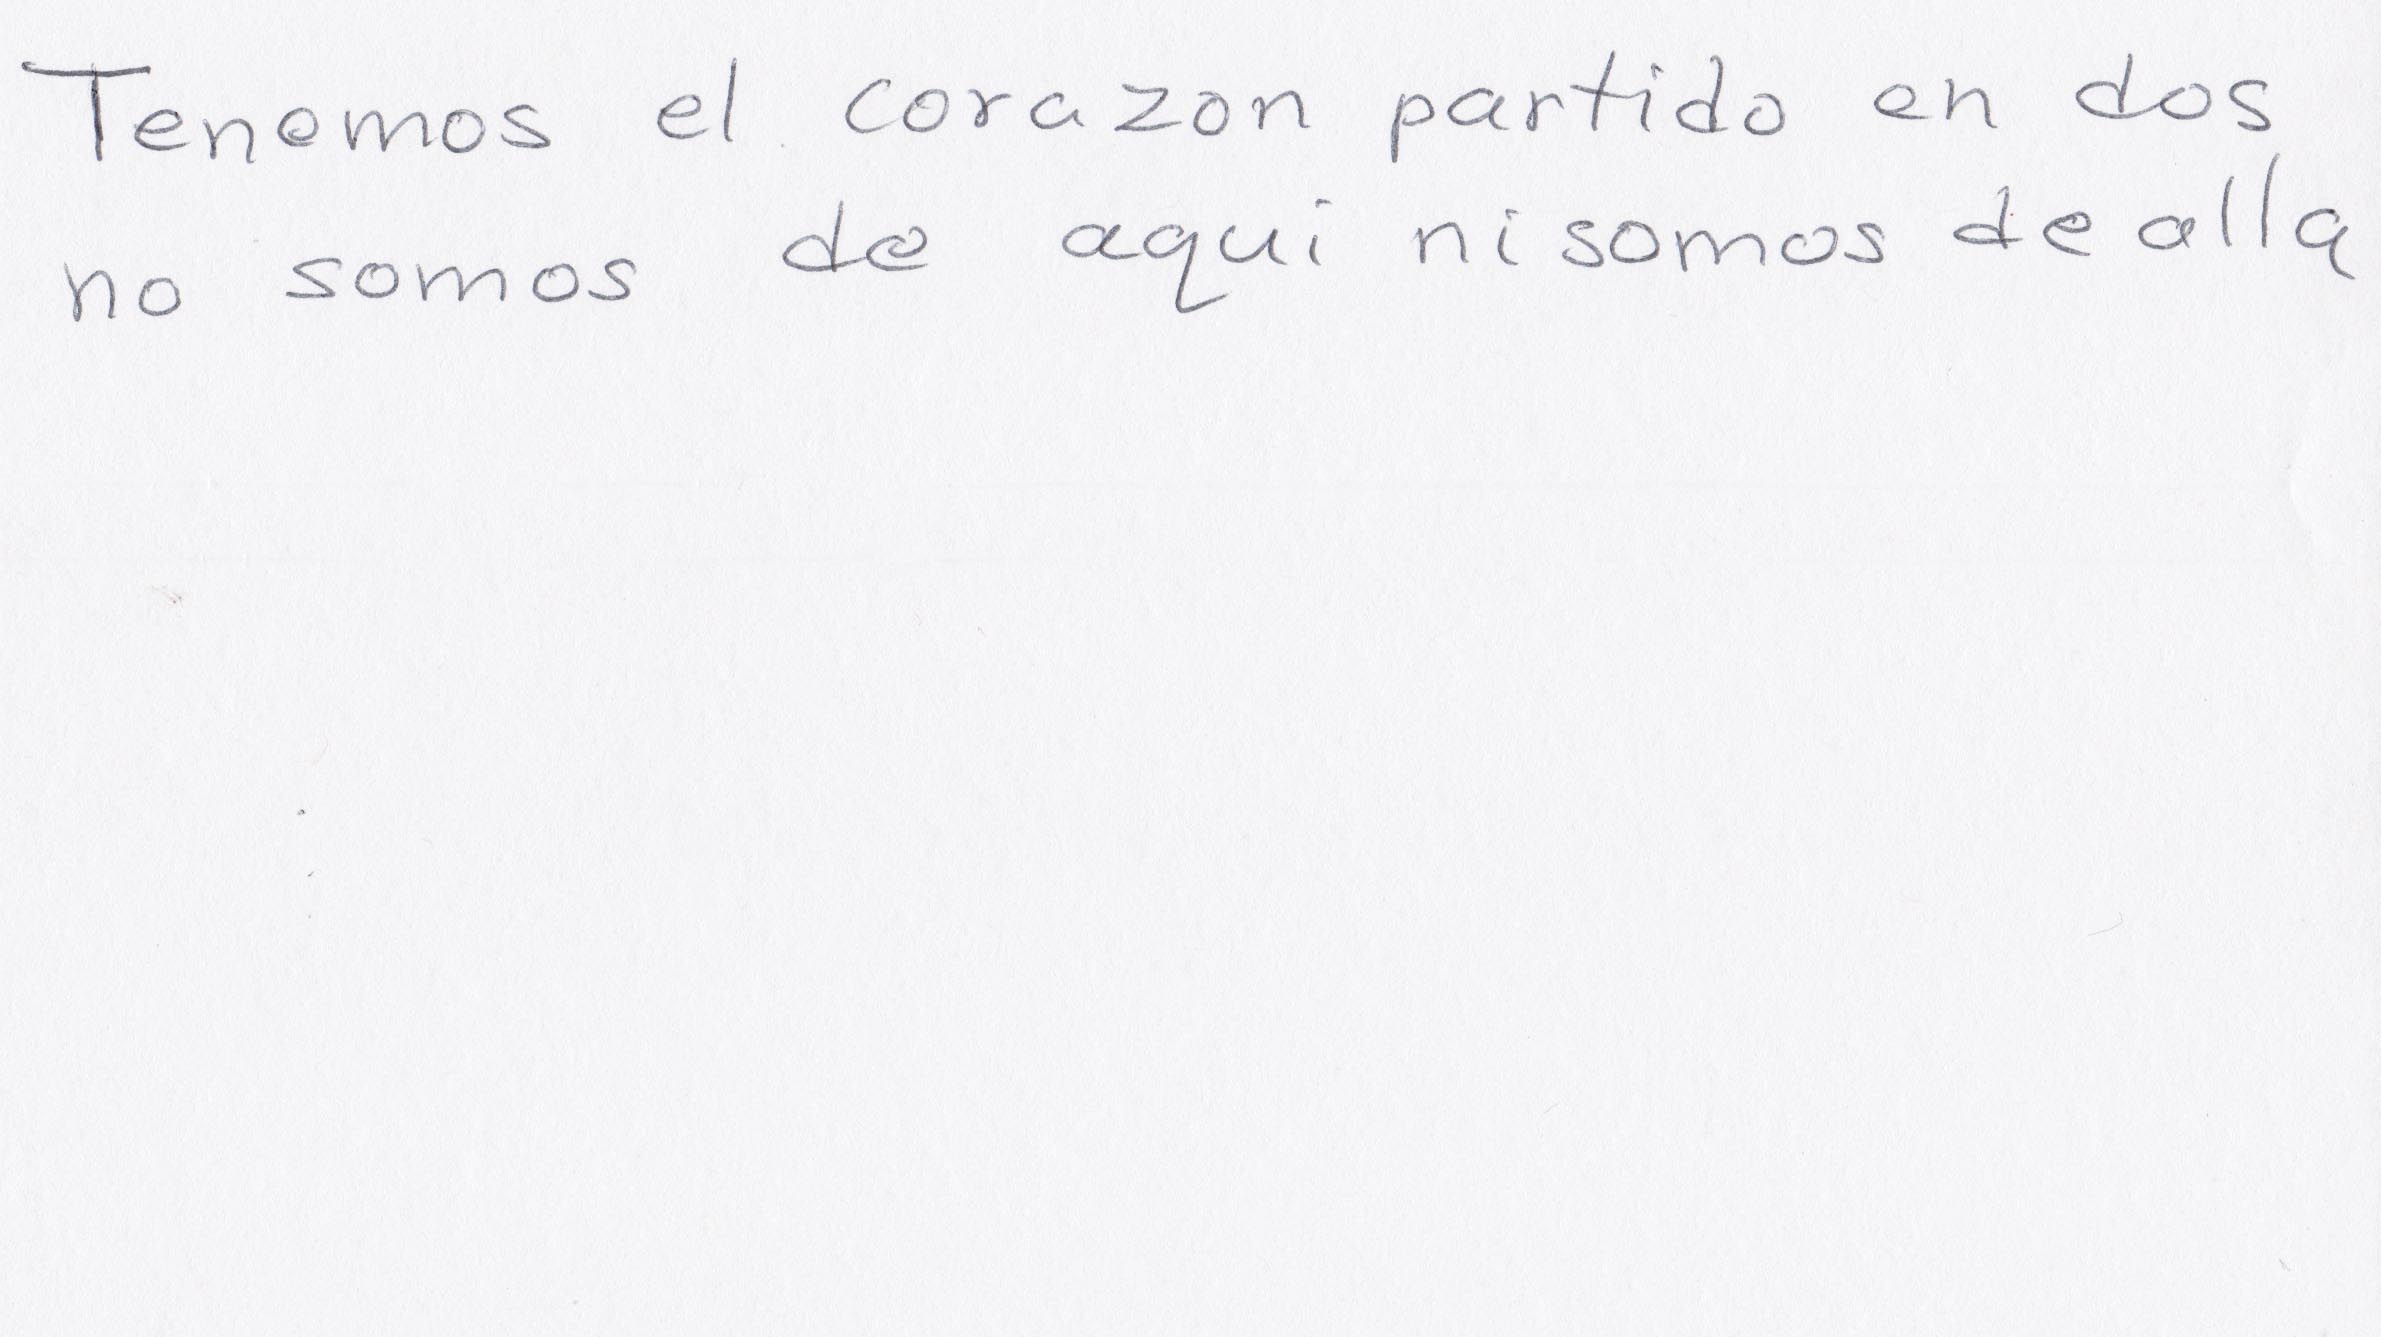 Tenemos el corazon partido en dos
no somos de aqui ni somos de alla